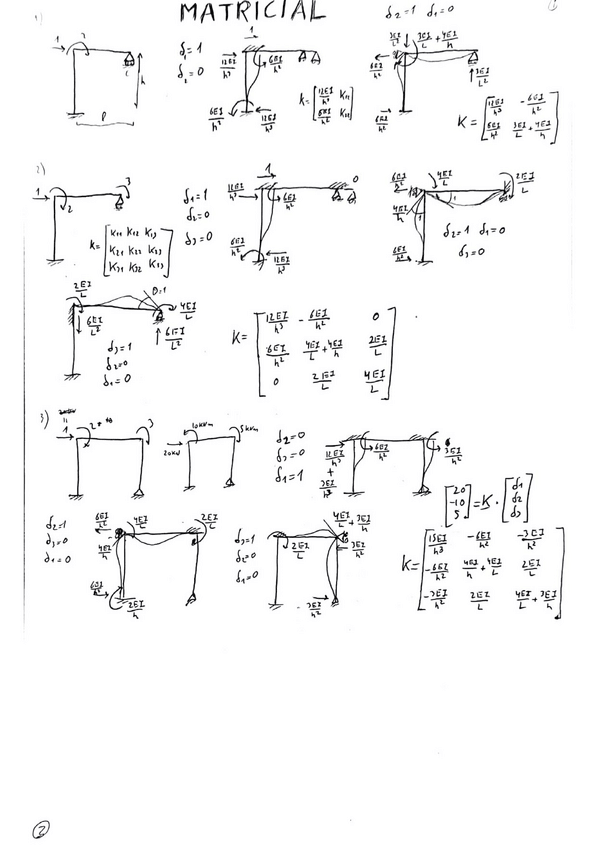 MATRICIAL
1)
1 2
h
δ1 = 1
δ2 = 0
1
12EI/h³
6EI/h²
6EI/h²
12EI/h³
K = [12EI/h³ K12
6EI/h² K22]
δ2 = 1 δ1 = 0
3EI/L²
3EI/L + 4EI/h
6EI/h²
3EI/L²
6EI/h²
K = [12EI/h³ -6EI/h²
6EI/h² 3EI/L + 4EI/h]
2)
1 2 3
K = [K11 K12 K13
K21 K22 K23
K31 K32 K33]
δ1 = 1
δ2 = 0
δ3 = 0
1
0
12EI/h³
6EI/h²
6EI/h²
12EI/h³
6EI/h²
4EI/L
2EI/L
4EI/h
6EI/h²
δ2 = 1 δ1 = 0
δ3 = 0
2EI/L
θ=1
4EI/L
6EI/L²
6EI/L²
δ3 = 1
δ2 = 0
δ1 = 0
K = [12EI/h³ -6EI/h² 0
6EI/h² 4EI/L + 4EI/h 2EI/L
0 2EI/L 4EI/L]
3)
1 2 3
10KNm 5KNm
20KN
δ2 = 0
δ3 = 0
δ1 = 1
12EI/h³
+
3EI/h³
6EI/h²
3EI/h²
[20
-10
5] = K · [δ1
δ2
δ3]
δ2 = 1
δ3 = 0
δ1 = 0
6EI/h²
4EI/L
2EI/L
4EI/h
6EI/h²
2EI/h
δ3 = 1
δ2 = 0
δ1 = 0
2EI/L
4EI/L + 3EI/h
3EI/h²
3EI/h²
K = [15EI/h³ -6EI/h² -3EI/h²
-6EI/h² 4EI/h + 4EI/L 2EI/L
-3EI/h² 2EI/L 4EI/L + 3EI/h]
2